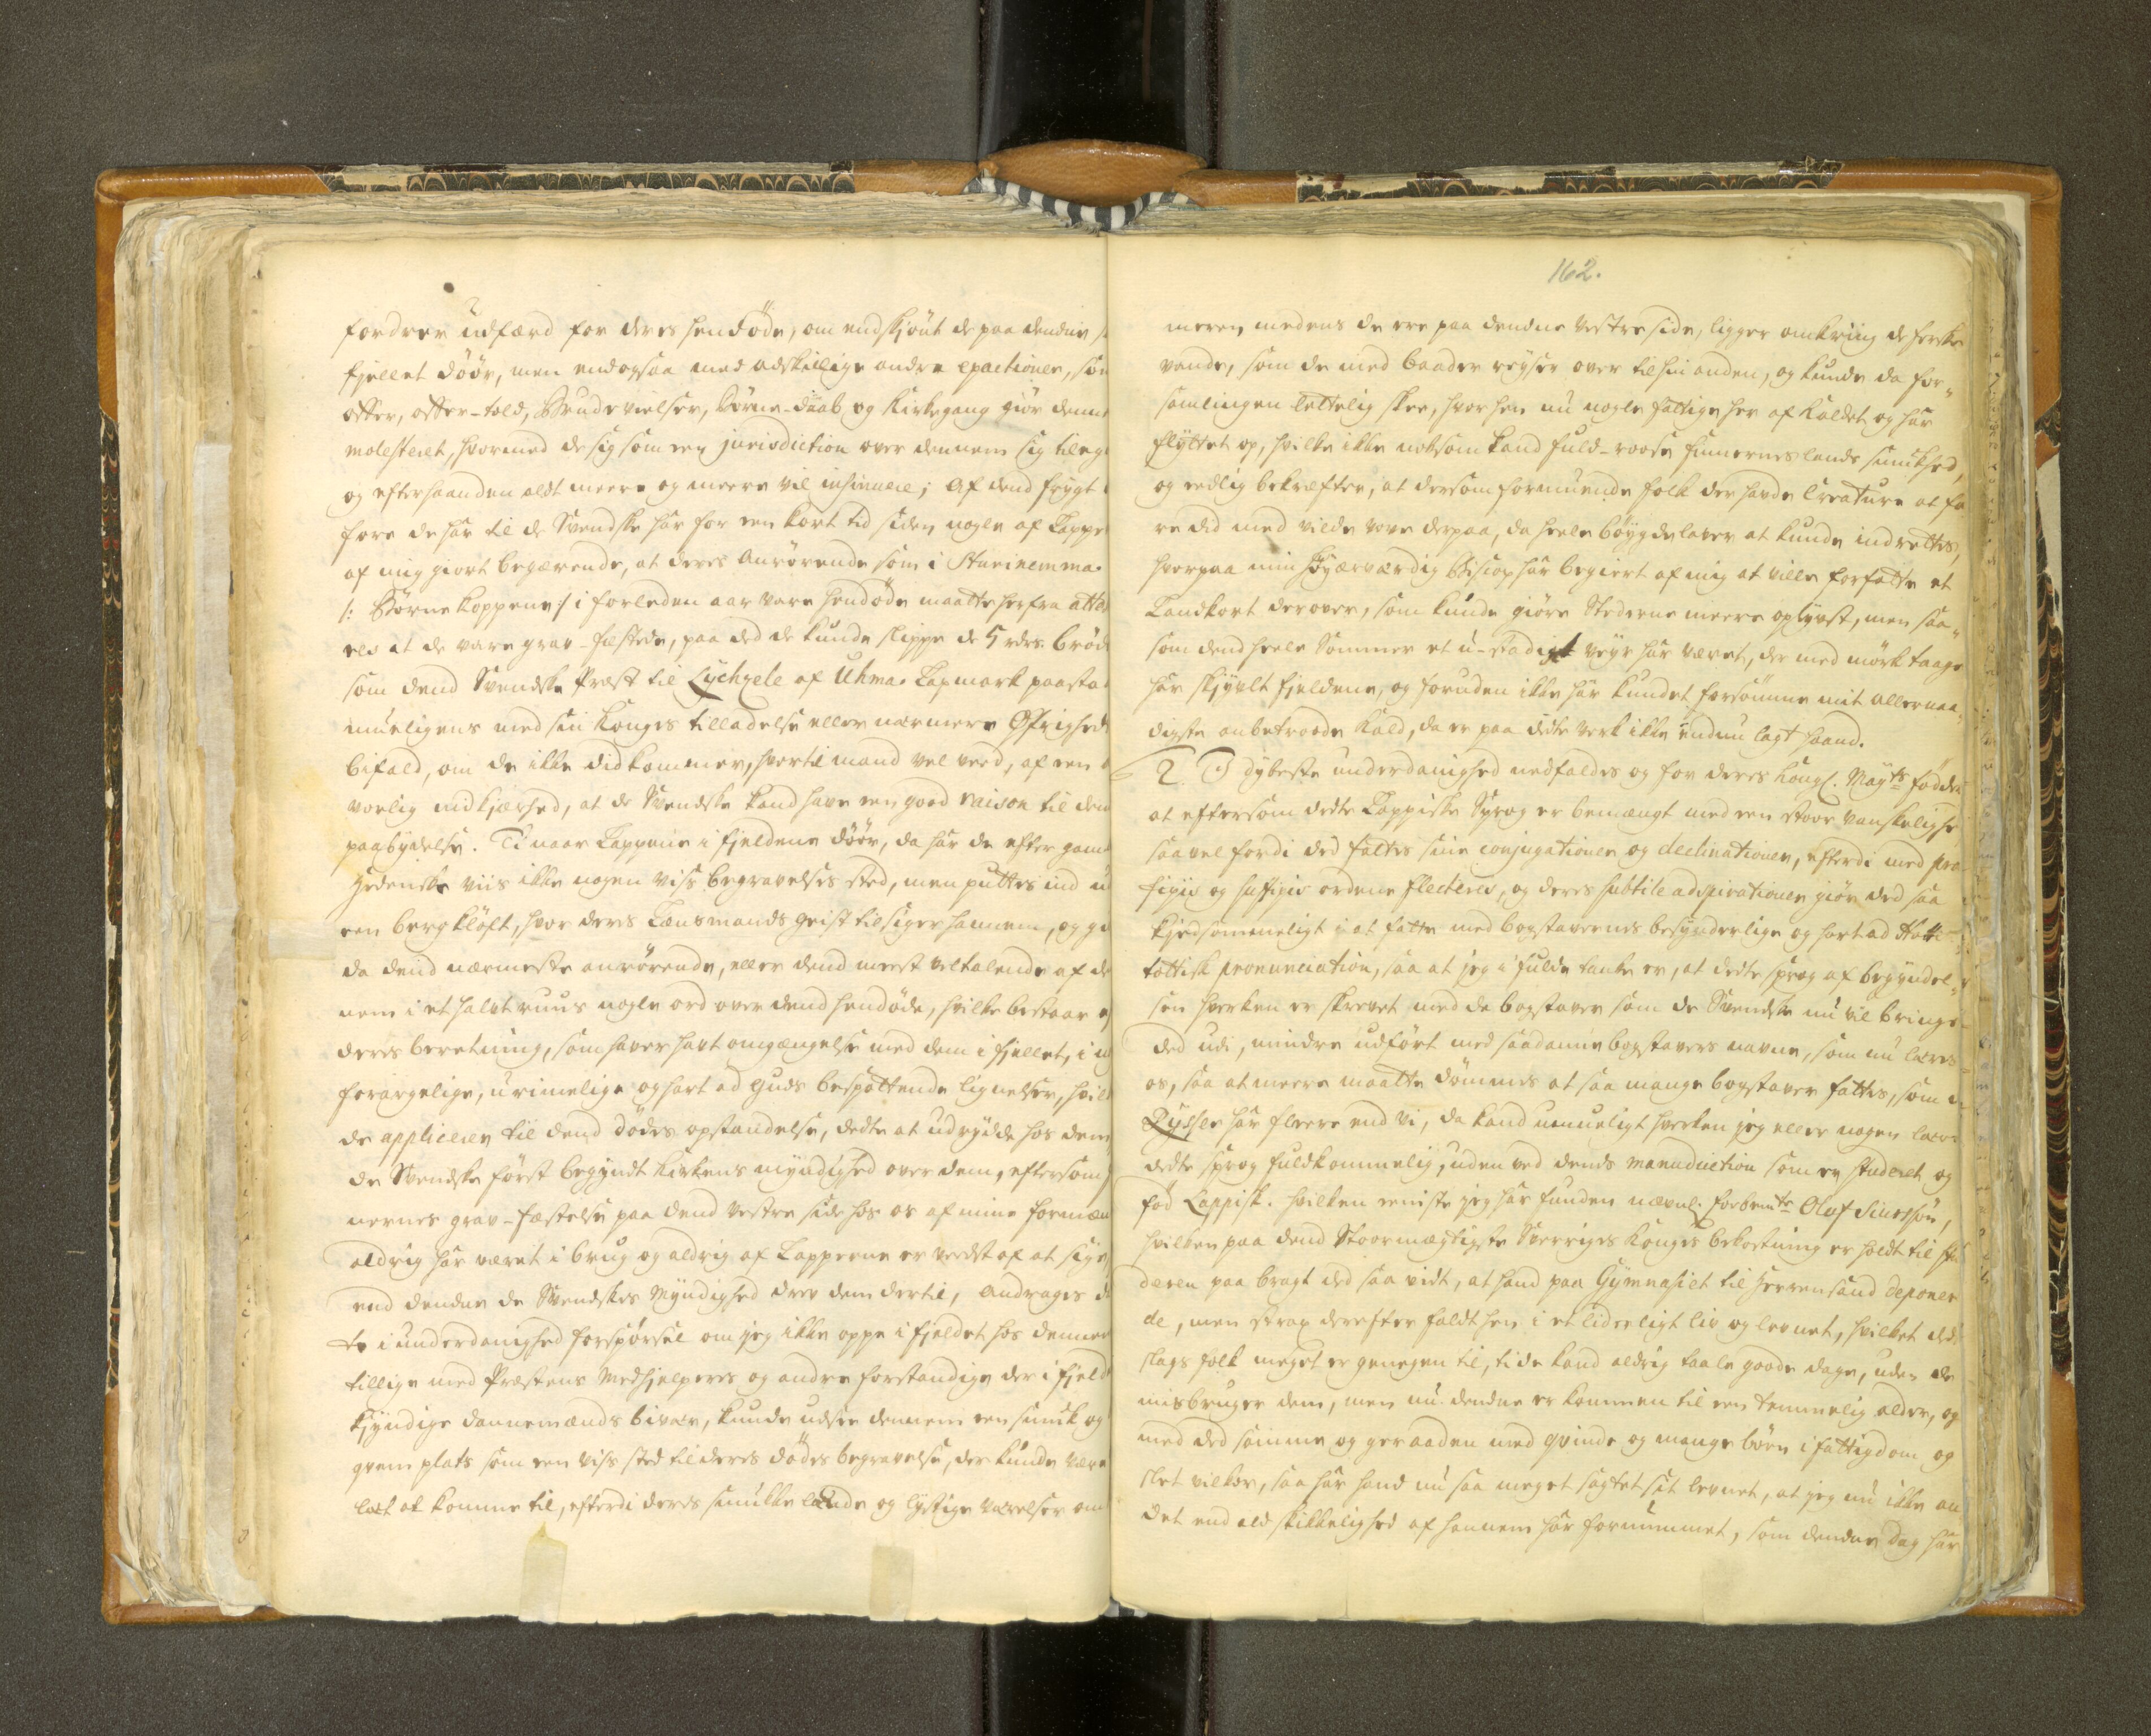 fordrer udfærd for deres hendöde, om endskjönt de paa dendne
fjellet döör, men endogsaa med adskillige andre exactioner, som
offer, offer-told, Brudevielser, Börne-daab og Kirkegang giör dennem
molesteret, hvormed de sig som een jurisdiction over dennem sig tileg
og efterhaanden aldt meere og meere vil insinuere; Af dend frygt
fore de har til de Svendske har for een kort tid siden nogle af Lapper
af mig giort begærende, at deres anrörende som i Sturinemma
/: Börne Koppene :/ i forleden aar vare hendöde maatte herfra atte
res at de vare grav-fæstede, paa ded de kunde slippe de 5 rdr. bröde
som dend Svendske Præst til Lychsele af Uhma Lapmark paasta
mueligens med sin Konges tilladelse eller nærmere Øfrigheds
bifald, om de ikke did kommer, hvortil mand vel veed, af een
vorlig nidkjærhed, at de Svendske kand have een good raison til den
paabydelse. Ti naar Lapperne i fjeldene döör, da har de efter gam
hedenske viis ikke nogen viss begravelses sted, men puttes ind u
een bergklöft, hvor deres Lensmands geist tilsiger hannem, og gi
da dend nærmeste anrörende, eller dend meest veltalende af de
nem i et halvt ruus nogle ord over dend hendöde, hvilke bestaar e
deres beretning, som haver havt omgængelse med dem i fjellet, i
forargelige, urimelige og hart ad Guds bespottende lignelser, hvil
de applicerer til dend dödes opstandelse, dette at udrydde hos dem
de Svendske först begyndt Kirkens myndighed over dem, eftersom
nernes grav-fæstelse paa dend vestre side hos os af mine formæn
aldrig har været i brug og aldrig af Lapperne er veedst af at sige
end dendne de Svendskes Myndighed drev dem dertil, andrages d
te i underdanighed forspörsel om jeg ikke oppe i fjeldet hos dennem
tillige med Præstens Medhjelperes og andre forstandige der i fjeld
kyndige dannemænds bivær, kunde udsee dennem een smuck og
grøn plats som een viss sted til deres dödes begravelse, der kunde være
læt at komme til, efterdi deres smukke lande og lystige værelser om
162.
meren medens de ere paa dendne vestre side, ligger omkring de ferske
vande, som de med baader reyser over til hin anden, og kunde da for„
samlingen lettelig skee, hvor hen nu nogle fattige her af Kaldet og har
flyttet op, hvilke ikke noksom kand fuld-roose finnernes lands smukhed,
og eedlig bekræfter, at dersom formuende folk der havde Creature at fö
re did med vilde vove derpaa, da heele böygdelaver at kunde indrettes,
hvorpaa min Høyærværdig Biscop har begiert af mig at ville forfatte et
Landkort derover, som kunde giöre Stederne meere oplyst, men saa„
som dend heele Sommer et u-stadigt veyr har været, der med mörk taage
har skjult fjeldene, og foruden ikke har kundet forsömme mit allernaa„
digste anbetroede Kald, da er paa dette verk ikke endnu lagt haand.
2. I dybeste underdanighed nedfaldes og for deres Kongl. Mayts födder
at eftersom dette Lappiske Sprog er bemængt med een stoor vanskelighe
saavel fordi ded fattes sine conjugationer og declinationer, efterdi med præ
figis og suffigis ordene flecteres, og deres subtile adspirationer giör ded saa
kjedsommeligt at fatte med bogstavernes besynderlige og hart ad Hotten
tottisk pronunciation, saa at jeg i fulde tanke er, at dette sprog af begyndel„
sen hverken er skrevet med de bogstaver som de Svendske nu vil bringe
ded udi, mindre udfört med saadanne bogstavers navne, som nu læres
os, saa at meere maatte dömmes at saa mange bogstaver fattes, som
Rysser har fleere end vi, da kand umueligt hverken jeg eller nogen lære
dette sprog fuldkommelig, uden ved dends manuduction som er studeret og
föd Lappisk. Hvilken eeniste jeg har funden nævnl. forbemte Oluf Siursön,
hvilken paa dend Stoormægtigste Sverriges Konges bekostning er holdt til stu
deren paa bragt ded saa vidt, at hand paa Gymnasiet til Hernösand deponer
de, men strax derefter faldt hen i et liderligt liv og levnet, hvilket ded
slags folk meget er genegen til, ti de kand aldrig taale goode dage, uden de
misbruger dem, men nu dendne er kommen til een temmelig alder, og
med ded samme og geraaden med qvinde og mange börn i fattigdom og
slet vilkor, saa har hand nu saa meget sagtet sit levnet, at jeg nu ikke an
det end ald skikkelighed af hannem har fornummet, som dendne dag har